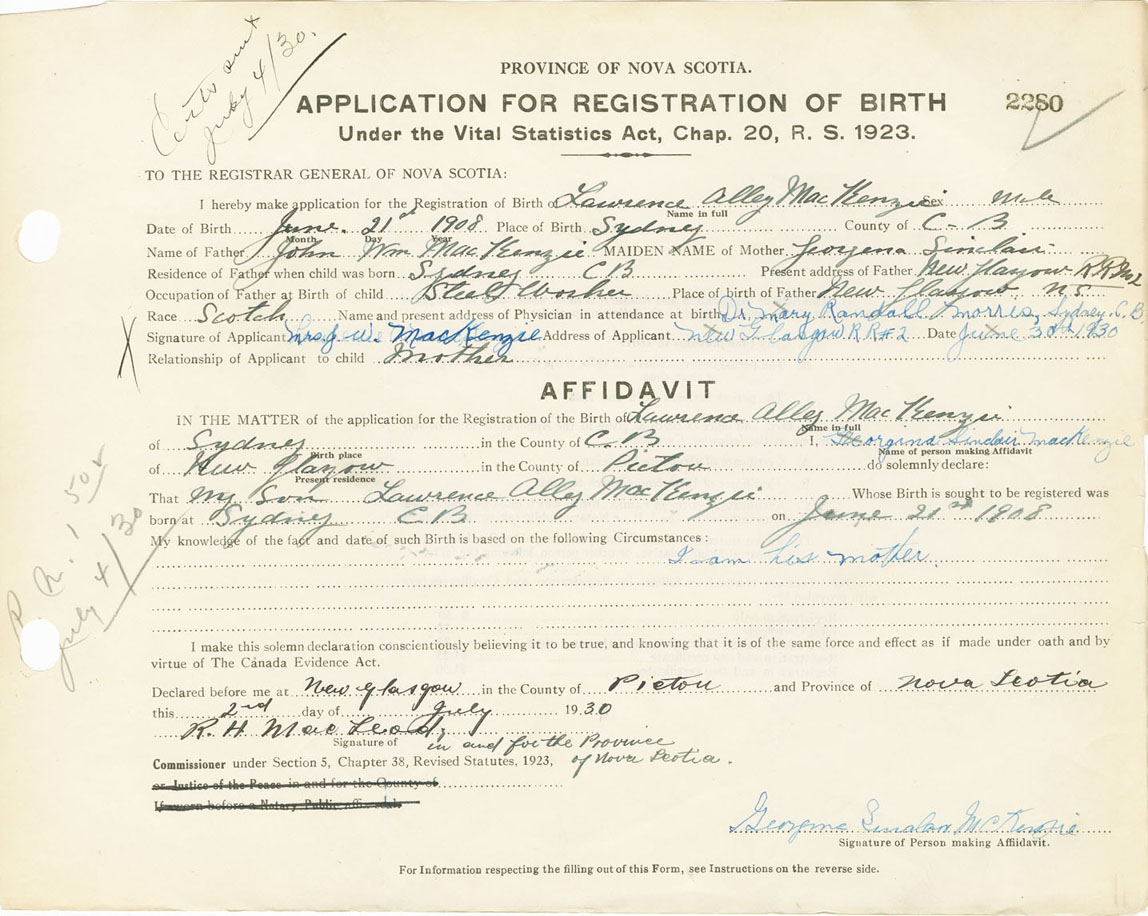 Cert sent
July 4/30.
PROVINCE OF NOVA SCOTIA.
APPLICATION FOR REGISTRATION OF BIRTH 2280
Under the Vital Statistics Act, Chap. 20, R. S. 1923.
TO THE REGISTRAR GENERAL OF NOVA SCOTIA:
I hereby make application for the Registration of Birth of Lawrence Alley MacKenzie Sex Male
Name in full
Date of Birth June. 21st 1908 Place of Birth Sydney County of C- B
Month Day Year
Name of Father John Wm MacKenzie MAIDEN NAME of Mother Georgena Sinclair
Residence of Father when child was born Sydney CB Present address of Father New Glasgow RR No 2
Occupation of Father at Birth of child Steel Worker Place of Birth of Father New Glasgow N S
Race Scotch Name and present address of Physician in attendance at birth Dr. Mary Randall Morris, Sydney C. B
Signature of Applicant Mrs J. W. MacKenzie Address of Applicant New Glasgow RR#2 Date June 30th 1930
Relationship of Applicant to child Mother
AFFIDAVIT
IN THE MATTER of the application for the Registration of the Birth of Lawrence Alley MacKenzie
Name in full
of Sydney in the County of C B I, Georgina Sinclair MacKenzie
Birth place Name of person making Affidavit
of New Glasgow in the County of Pictou do solemnly declare:
Present residence
That My Son Lawrence Alley MacKenzie Whose Birth is sought to be registered was
born at Sydney C B on June 21st 1908
My knowledge of the fact and date of such Birth is based on the following Circumstances:
I am his mother
R. N. 1 50¢
July 4/30
I make this solemn declaration conscientiously believing it to be true, and knowing that it is of the same force and effect as if made under oath and by
virtue of The Canada Evidence Act.
Declared before me at New Glasgow in the County of Pictou and Province of Nova Scotia
this 2nd day of July 1930
R. H. MacLeod,
Signature of in and for the Province
Commissioner under Section 5, Chapter 38, Revised Statutes, 1923, of Nova Scotia.
or Justice of the Peace in and for the County of
If sworn before a Notary Public affix seal.
Georgina Sinclair McKenzie
Signature of Person making Affidavit.
For Information respecting the filling out of this Form, see Instructions on the reverse side.